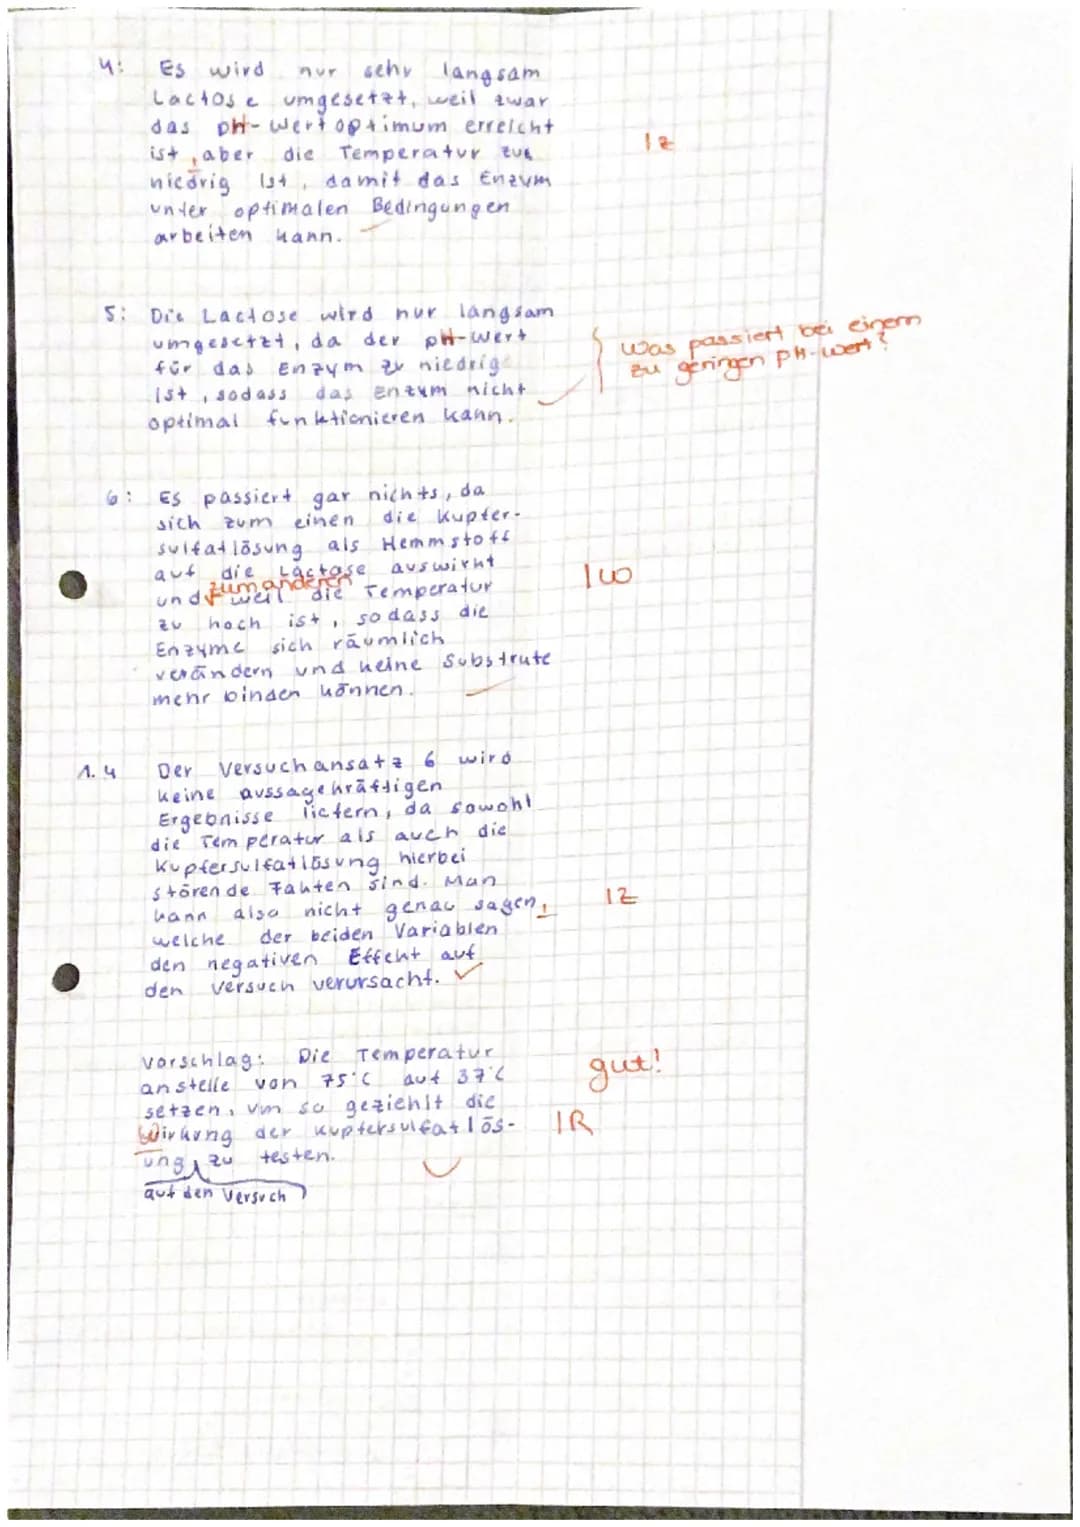 4: Es wird nur sehr langsam
Lactose umgesetzt, weil zwar
das pH-Wertoptimum erreicht
ist, aber die Temperatur zu
niedrig ist, damit das Enzym
unter optimalen Bedingungen
arbeiten kann.
IZ
5: Die Lactose wird nur langsam
umgesetzt, da der pH-Wert
für das Enzym zu niedrig
ist, sodass das Enzym nicht
optimal funktionieren kann.
Was passiert bei einem
zu geringen pH-Wert?
6: Es passiert gar nichts, da
sich zum einen die Kupfer-
sulfatlösung als Hemmstoff
auf die Lactase auswirkt
zum anderen
und weil die Temperatur
zu hoch ist, sodass die
Enzyme sich räumlich
verändern und keine Substrate
mehr binden können.
IW
1.4 Der Versuchansatz 6 wird
keine aussagekräftigen
Ergebnisse liefern, da sowohl
die Temperatur als auch die
Kupfersulfatlösung hierbei
störende Fakten sind. Man
kann also nicht genau sagen,
welche der beiden Variablen
den negativen Effekt auf
den Versuch verursacht.
IZ
Vorschlag: Die Temperatur
anstelle von 75°C auf 37°C
setzen, um so gezielt die
Wirkung der Kupfersulfatlös-
ung zu testen.
auf den Versuch
gut!
IR